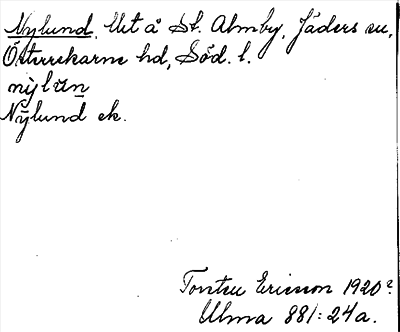 Nylund, Utå St. Almby, Jäders sn,
Österrekarne hd, Söd. l.
nỳlu̇n
Nylund ek.
Torsten Ericsson 1920?
Ulma 881:24a.